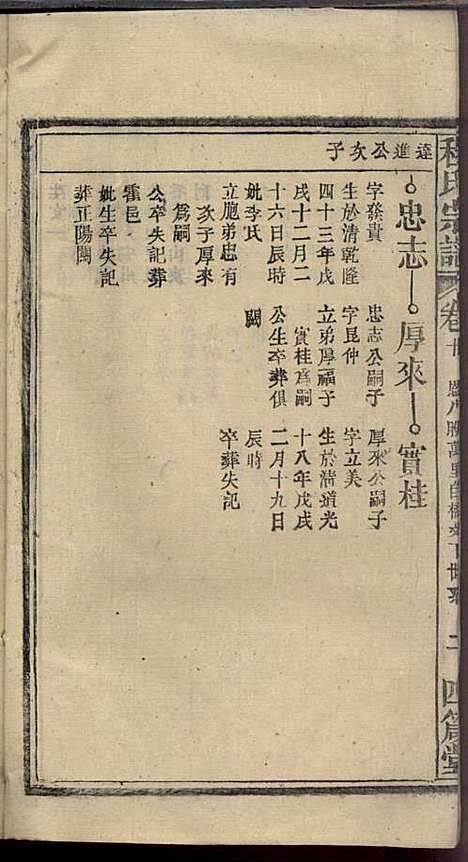 程氏宗譜
卷廿
二
四篤堂
達進公次子
忠志
厚來
實桂
字發貴
生於清乾隆
四十三年戊
戌十二月二
十六日辰時
妣李氏
立胞弟忠有
次子厚來
爲嗣
公卒失記葬
霍邑
妣生卒失記
葬正陽關
忠志公嗣子
字昆仲
立弟厚福子
實桂爲嗣
公生卒葬俱
闕
厚來公嗣子
字立美
生於清道光
十八年戊戌
二月十九日
辰時
卒葬失記